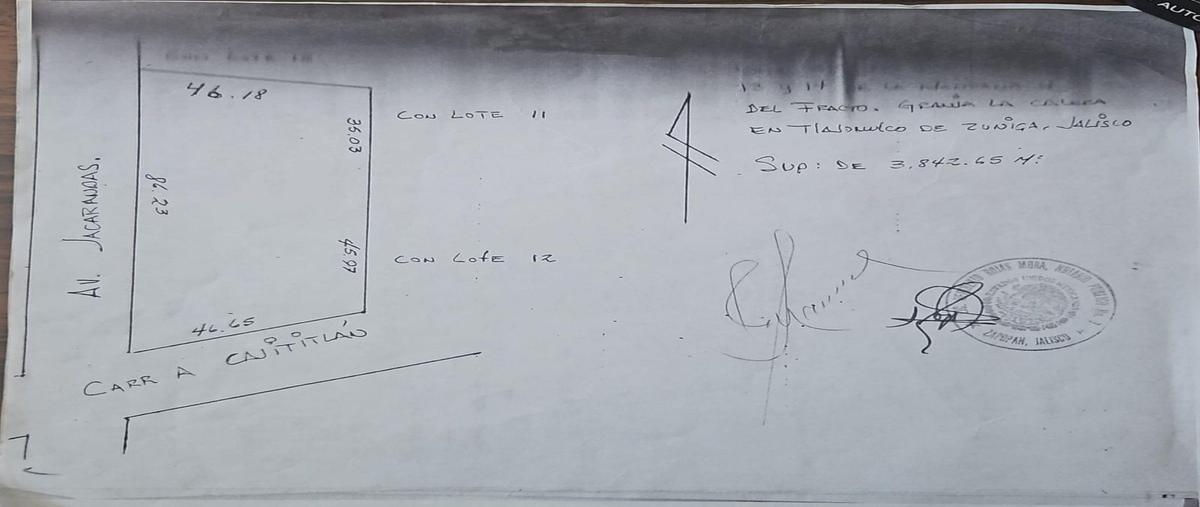 AUTO
CON LOTE 18
46.18
36.03
86.23
45.97
46.65
AV. JACARANDAS.
CARR A CAJITITLÁN
CON LOTE 11
CON LOTE 12
DEL FRACTO. GRANJA LA CALERA
EN TLAJOMULCO DE ZUÑIGA, JALISCO
SUP: DE 3,842.65 M²
ROJAS MORA, NOTARIO PUBLICO
ZAPOPAN, JALISCO